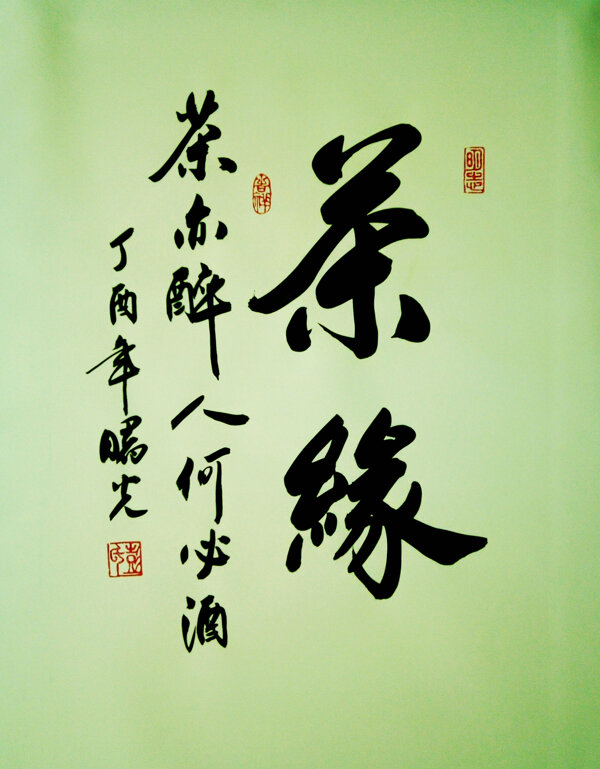 茶緣
茶亦醉人何必酒
丁酉年曙光
彭氏